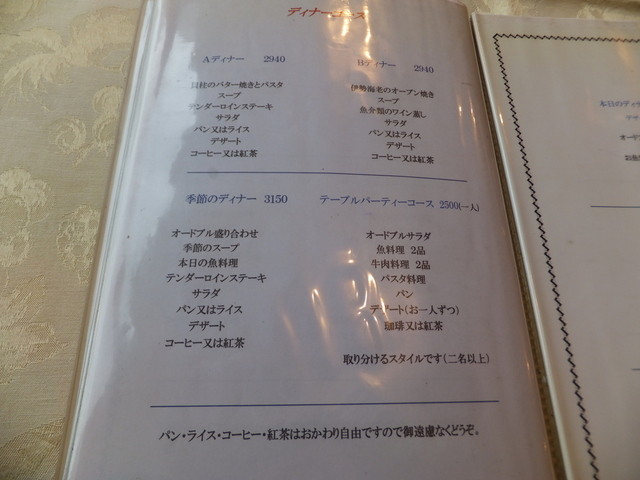 ディナーコース
Aディナー 2940
貝柱のバター焼きとパスタ
スープ
テンダーロインステーキ
サラダ
パン又はライス
デザート
コーヒー又は紅茶
Bディナー 2940
伊勢海老のオーブン焼き
スープ
魚介類のワイン蒸し
サラダ
パン又はライス
デザート
コーヒー又は紅茶
季節のディナー 3150
オードブル盛り合わせ
季節のスープ
本日の魚料理
テンダーロインステーキ
サラダ
パン又はライス
デザート
コーヒー又は紅茶
テーブルパーティーコース 2500(一人)
オードブルサラダ
魚料理 2品
牛肉料理 2品
パスタ料理
パン
デザート(お一人ずつ)
珈琲又は紅茶
取り分けるスタイルです(二名以上)
パン・ライス・コーヒー・紅茶はおかわり自由ですので御遠慮なくどうぞ。
本日のディ